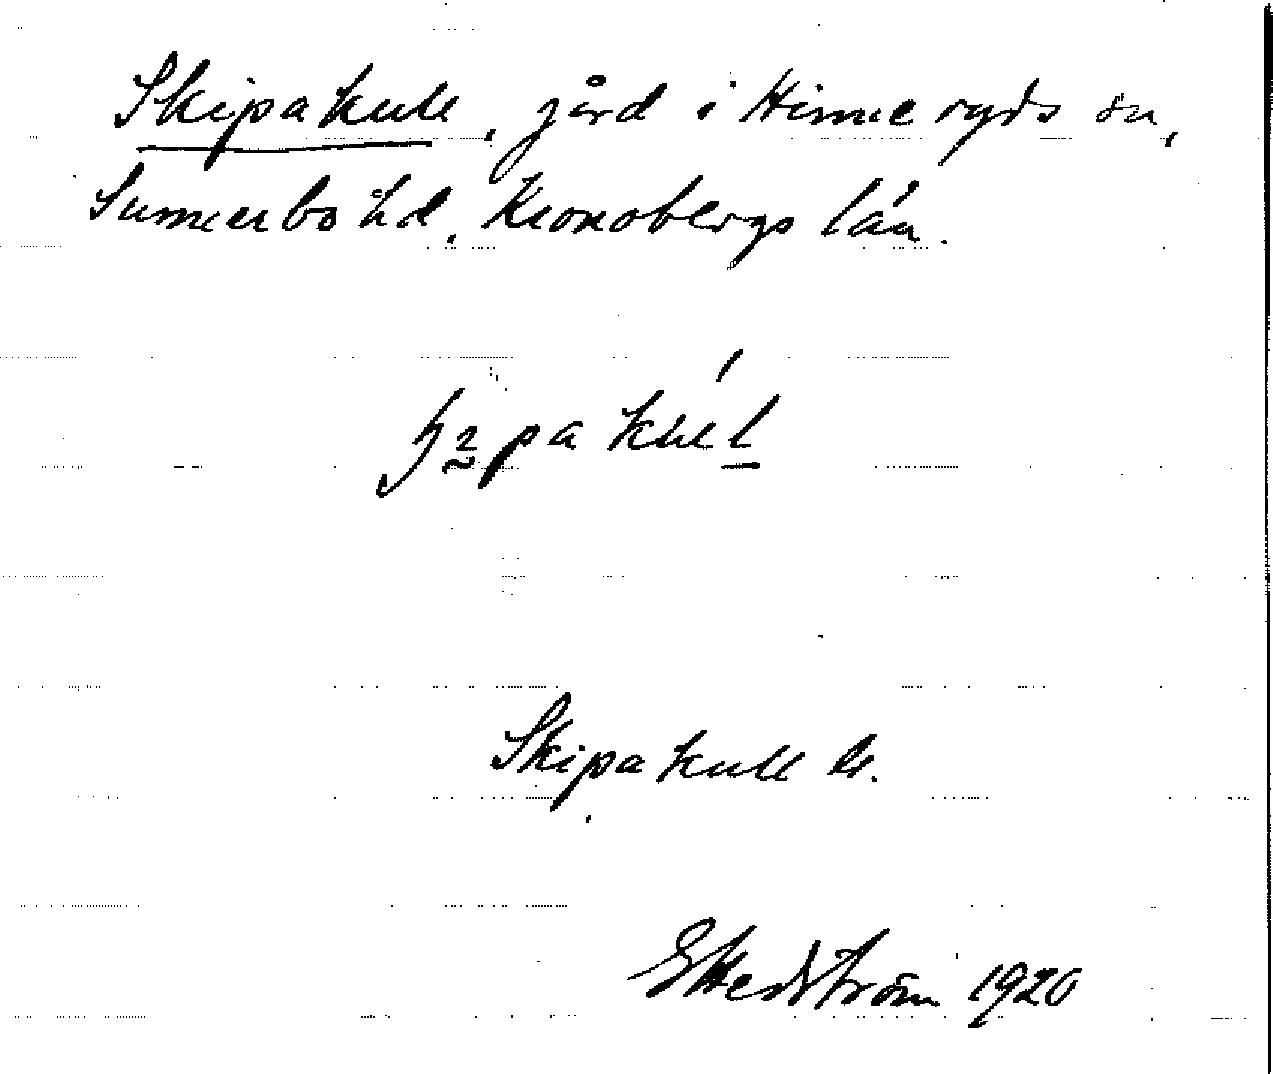 Skipakull, gård i Hinneryds sn,
Sunnerbo hd, Kronobergs län.
Skipakull kr.
G Hedström 1920